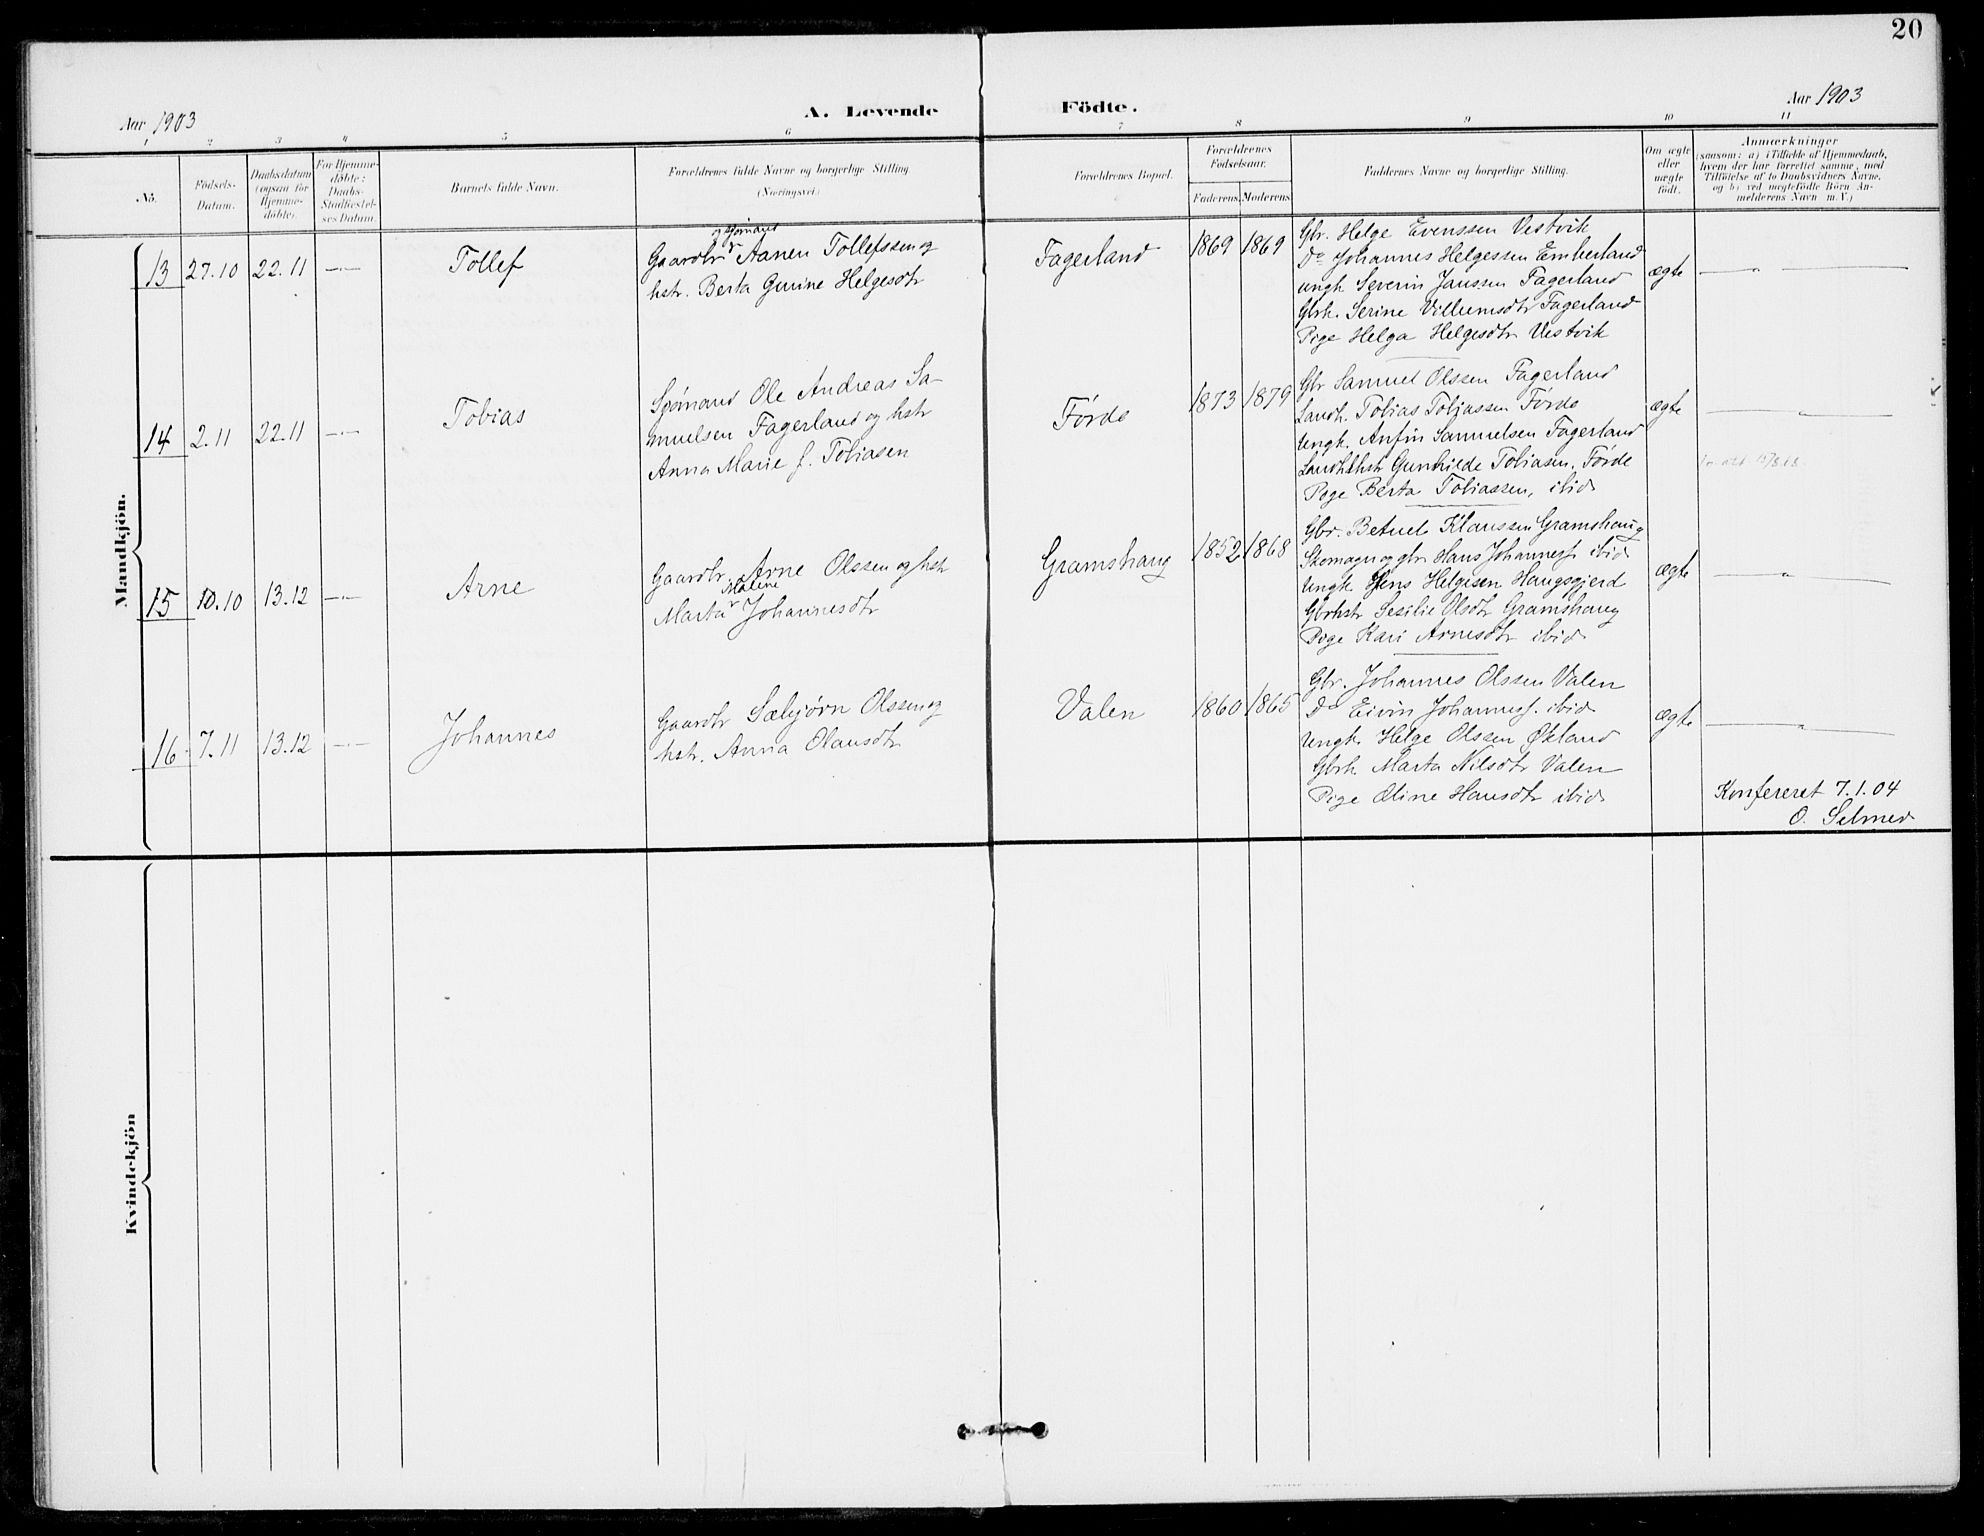 20
Aar 1903
A. Levende Födte.
Aar 1903
1 2 3 4 5 6 7 8 9 10 11
No.
Födsels-Datum.
Daabsdatum (ogsaa for Hjemmedöbte).
For Hjemmedöbte: Daabs-Stadfæstelses Datum.
Barnets fulde Navn.
Forældrenes fulde Navne og borgerlige Stilling (Næringsvei.)
Forældrenes Bopæl.
Forældrenes Födselsaar.
Faderens. Moderens.
Faddernes Navne og borgerlige Stilling.
Om ægte eller uægte födt.
Anmærkninger
(saasom: a) i Tilfælde af Hjemmedaab,
hvem der har forrettet samme, med
Tilföielse af to Daabsvidners Navne,
og b) ved uægtefödte Börn An-
melderens Navn m. V.)
Mandkjön.
13 27.10 22.11 —„— Tollef
og Sjømand
Gaardbr Aanen Tollefssen og
hstr. Berta Gurine Helgesdtr
Fagerland 1869 1869
Gbr. Helge Evenssen Vestvik
Do Johannes Helgessen Emberland
ungk Severin Janssen Fagerland
Gbrh. Serine Villumsdtr Fagerland
Pige Helga Helgesdtr Vestvik
ægte —„—
14 2.11 22.11 —„— Tobias
Sjømand Ole Andreas Sa-
muelsen Fagerland og hstr
Anna Marie f. Tobiasen
Førde 1873 1879
Gbr Samuel Olssen Fagerland
Landh. Tobias Tobiassen Førde
Ungk. Anfin Samuelsen Fagerland
Landhhstr Gunhilde Tobiasen, Førde
Pige Berta Tobiassen, ibid
ægte —„—
15 10.10 13.12 —„— Arne
Gaardbr. Arne Olssen og hstr
Malene
Marta Johannesdtr
Gramshaug 1852 1868
Gbr. Betuel Klaussen Gramshaug
Skomager og gbr Hans Johannesf ibid
Ungk Jens Helgesen Haugsgjerd
Gbrhstr Sesilie Olsdtr Gramshaug
Pige Kari Arnesdtr ibid
ægte —„—
16 7.11 13.12 —„— Johannes
Gaardbr Sæbjørn Olssen og
hstr. Anna Olausdtr
Valen 1860 1865
Gbr. Johannes Olssen Valen
Do Eivin Johannesf. ibid
Ungk. Helge Olssen Økland
Gbrh Marta Nilsdtr Valen
Pige Oline Hansdtr ibid
ægte —„—
Konfereret 7.1.04
O. Selmer
Kvindekjön